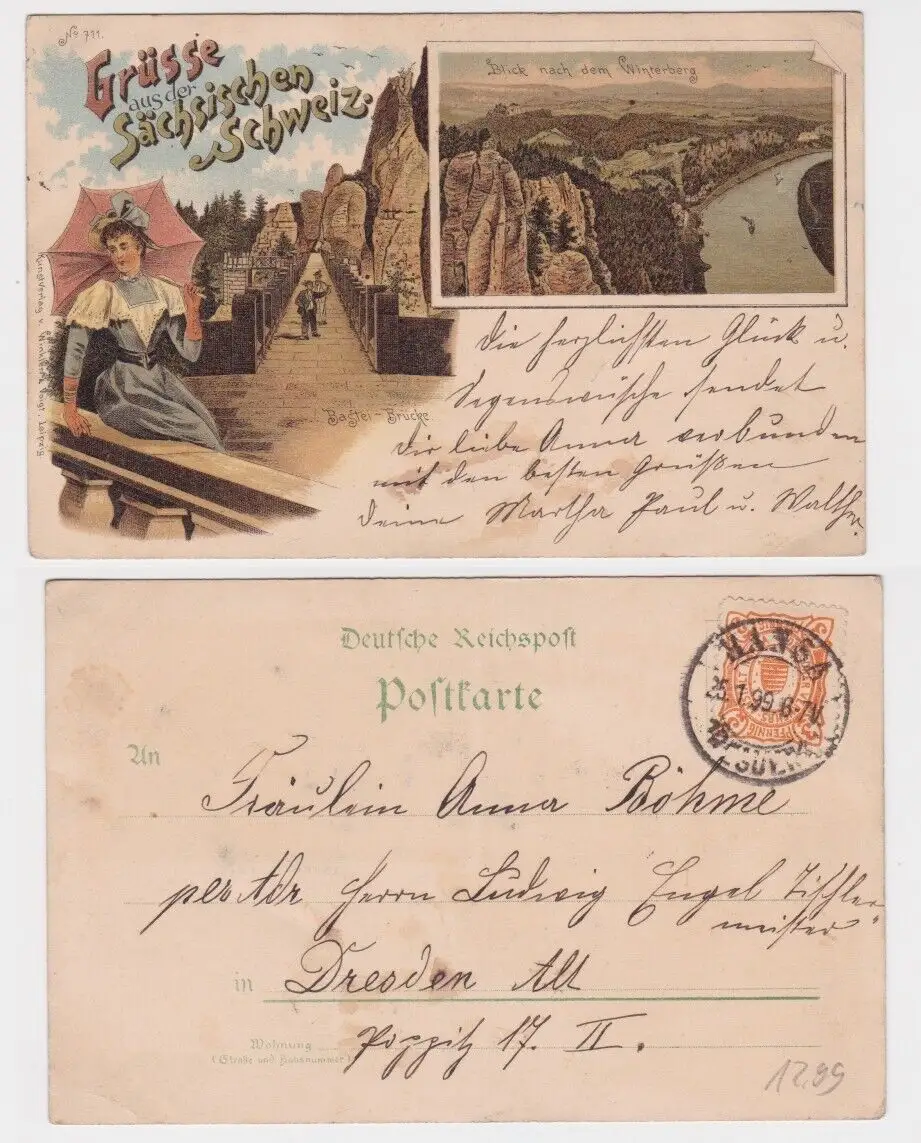 No 711.
Grüsse
aus der
Sächsischen
Schweiz.
Blick nach dem Winterberg
Bastei-Brücke
Die herzlichsten Glück u.
Segenswüsche sendet
dir liebe Anna verbunden
mit den besten Grüßen
deine Martha Paul u. Walther.
Deutsche Reichspost
Postkarte
HANSA
25.7.99.6-7N.
PFENNIG
An
Fräulein Anna Böhme
per Adr Herrn Ludwig Engel Tischler
meister"
in Dresden Alt
Wohnung
(Straße und Hausnummer)
Poppitz 17. II.
12.99